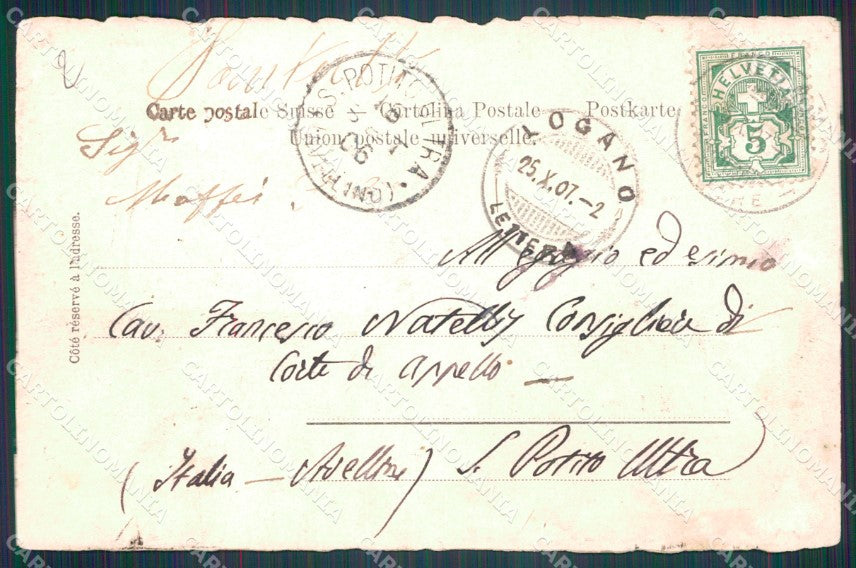 Carte postale Suisse Cartolina Postale Postkarte
Union postale universelle.
Sigr
Maffei
Côté réservé à l'adresse.
HELVETIA
5
LOGANO
25.X.07.-2
LETTERE
S. POTITO ULTRA
(AVELLINO)
All'egregio ed esimio
Cav. Francesco Natelly Consigliere di
Corte di Appello —
(Italia — Avellino) S. Potito Ultra
CARTOLINOMANIA